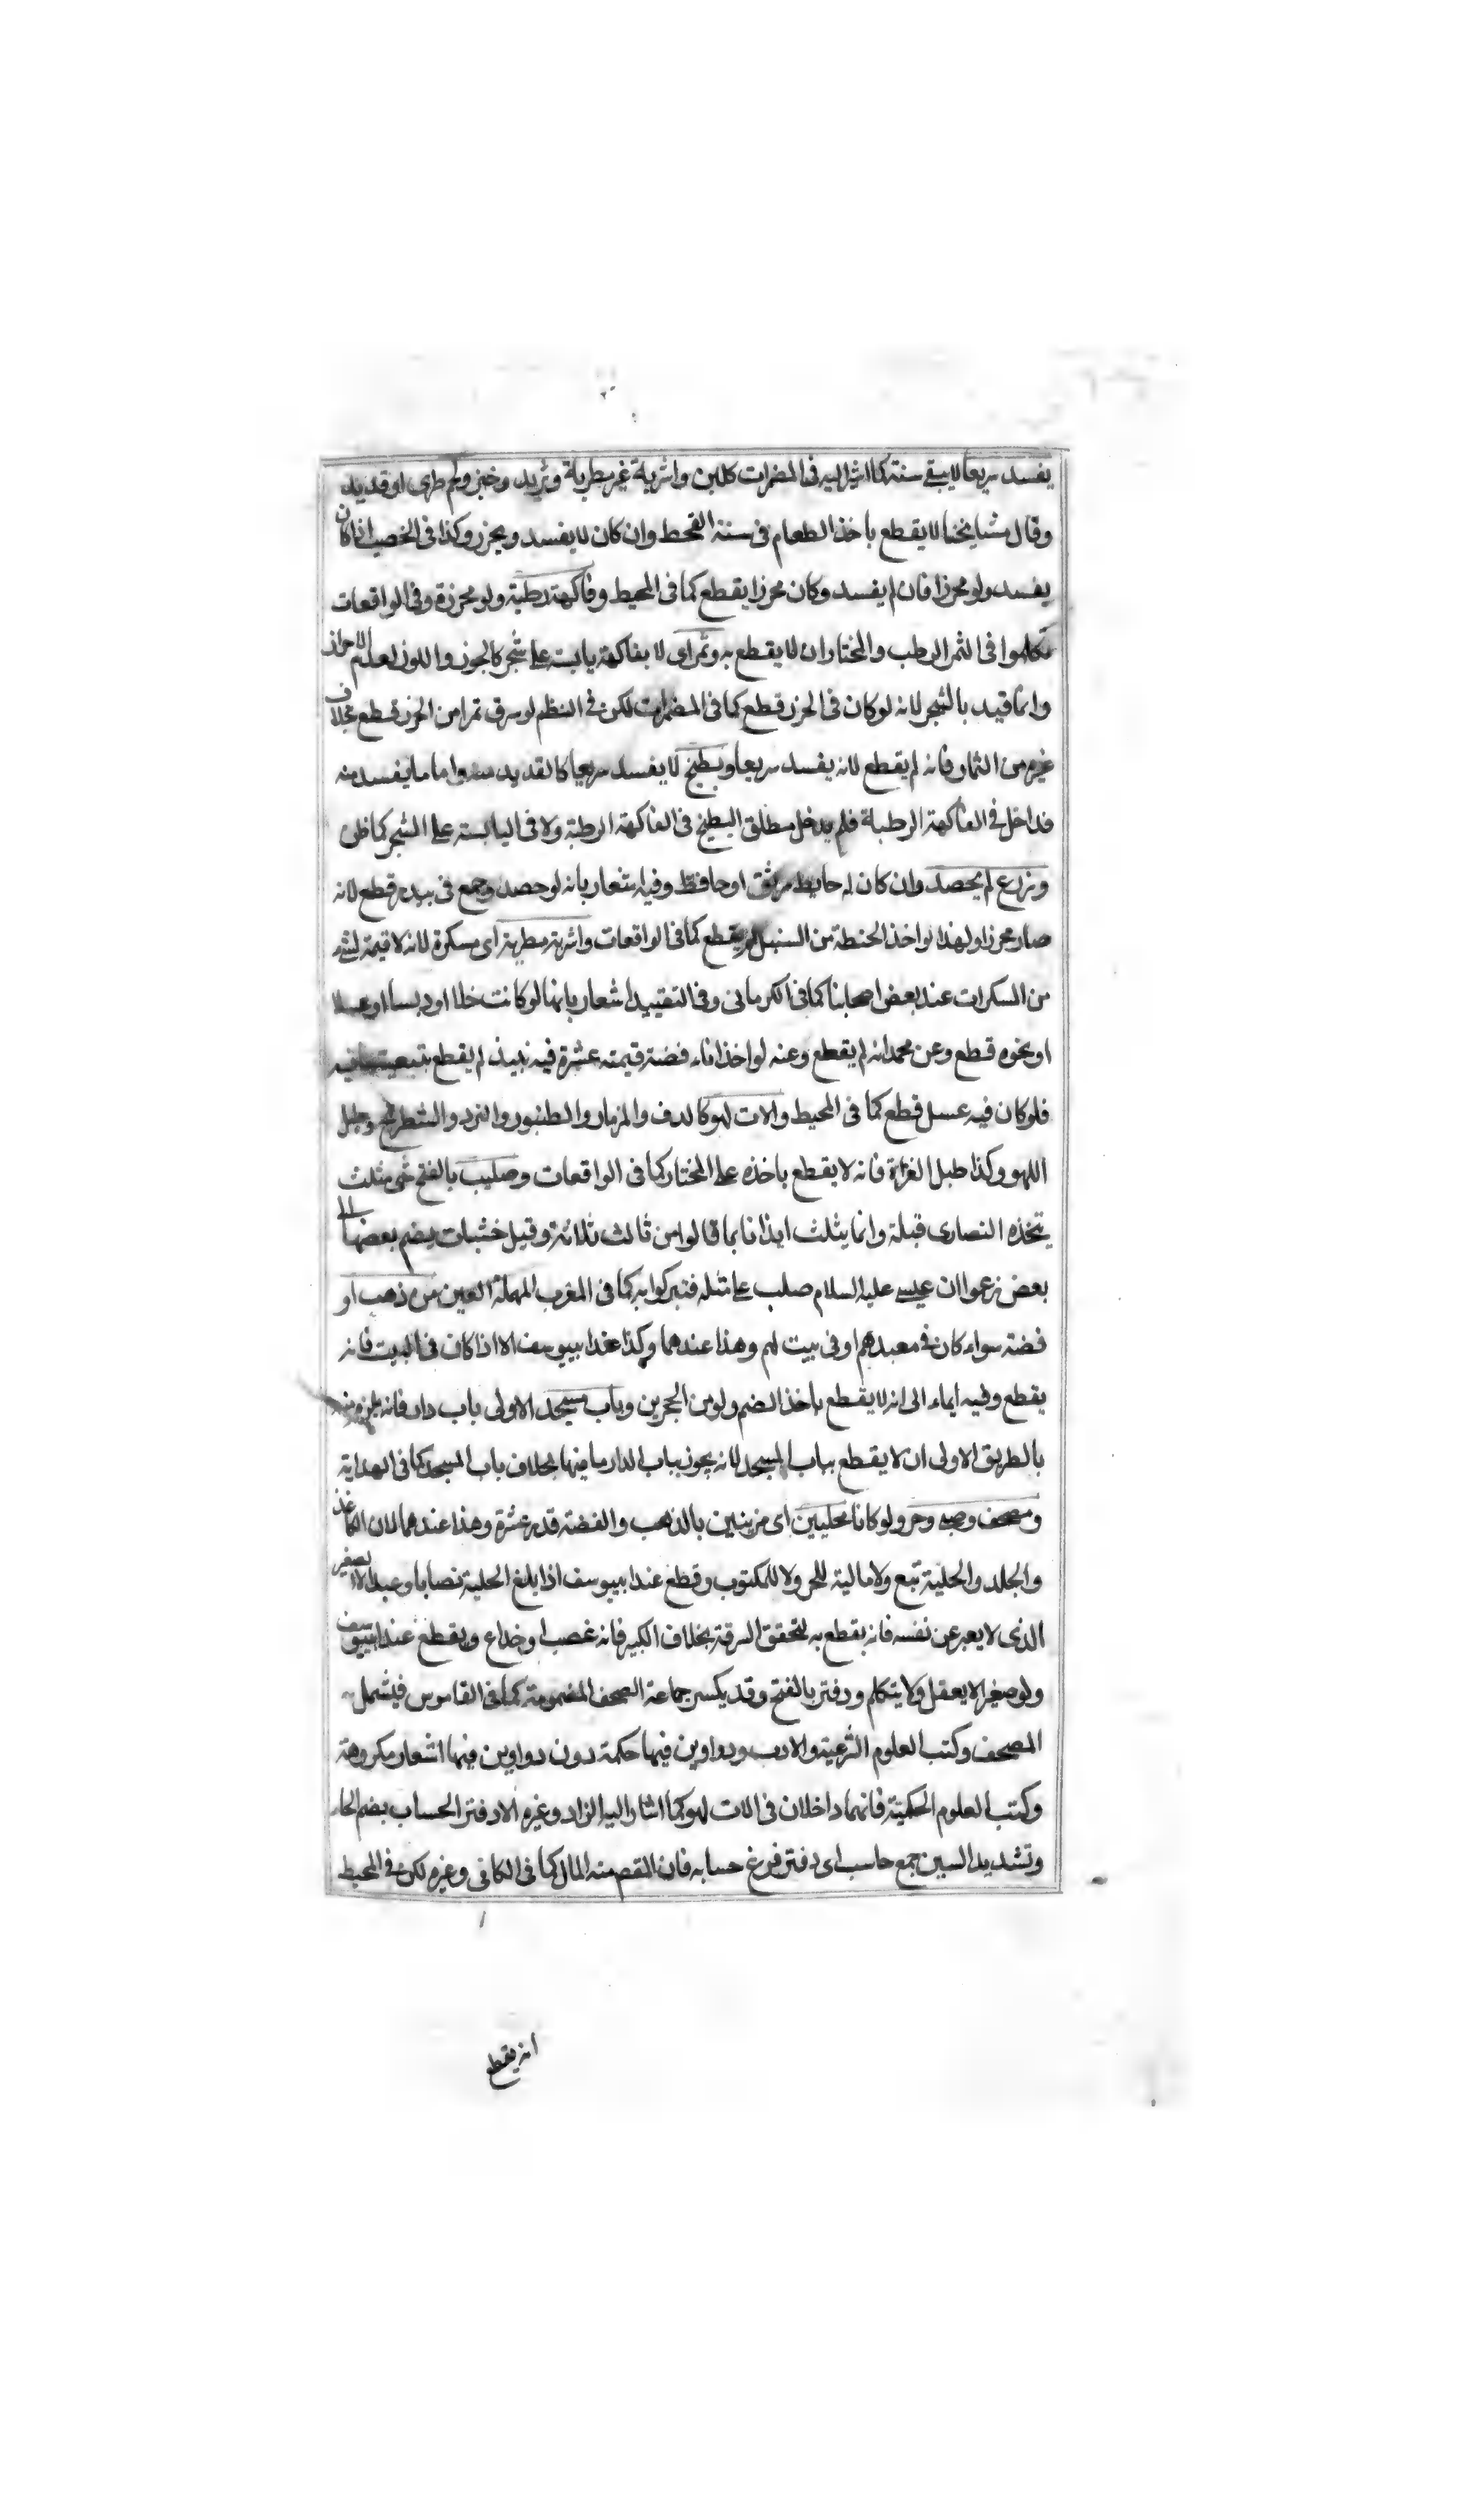 يفسد سريعا لا يبقى سنة كما اشير اليه فى المضمرات كلبن واشربة غير مطربة وثريد وخبز ولحم طرى او قديد
وقال مشايخنا لا يقطع باخذ الطعام فى سنة القحط وان كان لا يفسد ويحرز وكذا فى الخصب اذا كان
يفسد ولو محرزا فان لم يفسد وكان محرزا يقطع كما فى المحيط وفاكهة رطبة ولو محرزة وفى الواقعات
تكلموا فى الثمر الرطب والمختار ان لا يقطع به وثمر اى لا بفاكهة يابسة على شجر كالجوز واللوز لعدم الاحراز
وانما قيد بالشجر لانه لو كان فى الحرز قطع كما فى المضمرات لكن فى النظم لو سرق تمرا من الحرز قطع بخلاف
غيره من الثمار فانه لم يقطع لانه يفسد سريعا وبطيخ لا يفسد سريعا كالقديد منه واما ما يفسد منه
فداخل فى الفاكهة الرطبة فلم يدخل مطلق البطيخ فى الفاكهة الرطبة ولا فى اليابسة على الشجر كما ظن
وزرع لم يحصد وان كان له حايط موثق او حافظ وفيه اشعار بانه لو حصد وجمع فى بيدر قطع لانه
صار محرزا ولهذا لو اخذ الحنطة من السنبل لم يقطع كما فى الواقعات واشربة مطربة اى مسكرة لانه لا قيمة لشىء
من السكرات عند بعض اصحابنا كما فى الكرمانى وفى التقييد اشعار بانها لو كانت خلا او دبسا او عسلا
او نحوه قطع وعن محمد انه لم يقطع وعنه لو اخذ اناء فضة قيمته عشرة فيه نبيذ لم يقطع بتبعية ما فيه
فلو كان فيه عسل قطع كما فى المحيط والات لهو كالدف والمزمار والطنبور والنرد والشطرنج وطبل
اللهو وكذا طبل الغزاة فانه لا يقطع باخذه على المختار كما فى الواقعات وصليب بالفتح شئ مثلث
يتخذه النصارى قبلة وانما يثلث ايذانا بما قالوا من ثالث ثلاثة وقيل خشبات يضم بعضها الى
بعض زعموا ان عيسى عليه السلام صلب على مثله فتبركوا به كما فى المغرب المهملة العين من ذهب او
فضة سواء كان فى معبدهم او فى بيت لهم وهذا عندهما وكذا عند ابيوسف الا اذا كان فى البيت فانه
يقطع وفيه ايماء الى انه لا يقطع باخذ الصنم ولو من الحجرين وباب مسجد الاولى باب دار فانه يلزم منه
بالطريق الاولى ان لا يقطع بباب المسجد لانه يحرز بباب الدار ما فيها بخلاف باب المسجد كما فى الهداية
ومصحف وصبى وحر ولو كانا محليين اى مزينين بالذهب والفضة قدر عشرة وهذا عندهما لان الكاغذ
والجلد والحلية تبع ولا مالية للحر ولا للمكتوب وقطع عند ابيوسف اذا بلغ الحلية نصابا وعبد الا الصغير
الذى لا يعبر عن نفسه فانه يقطع به لتحقق السرقة بخلاف الكبير فانه غصب او خداع ويقطع عند ابيوسف
ولو صغيرا لا يعقل ولا يتكلم ودفتر بالفتح وقد يكسر جماعة الصحف المضمومة كما فى القاموس فيشمل
المصحف وكتب العلوم الشرعية والادب ودواوين فيها حكمة دون دواوين فيها اشعار مكروهة
وكتب العلوم الحكمية فانهما داخلان فى الات لهو كما اشار اليه الزاد وغيره الا دفتر الحساب بضم الحاء
وتشديد السين جمع حاسب اى دفتر فرغ حسابه فان المقصم منه المال كما فى الكافى وغيره لكن فى المحيط
انه يقطع